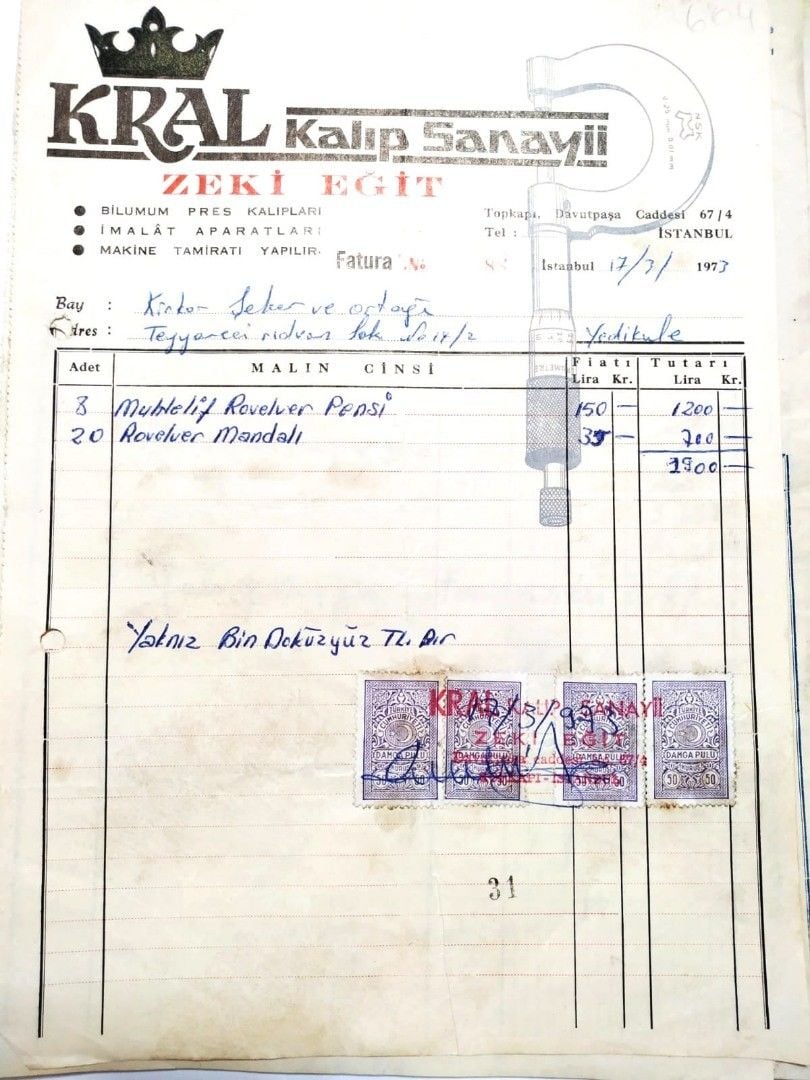 684
KRAL Kalıp Sanayii
ZEKİ EĞİT
● BİLUMUM PRES KALIPLARI
● İMALÂT APARATLARI
● MAKİNE TAMİRATI YAPILIR.
Topkapı, Davutpaşa Caddesi 67/4
Tel : İSTANBUL
Fatura No İstanbul 17/3/1973
NSK
0-25 mm 0.01 mm
Bay : Kirkor Şeker ve ortağı
Adres : Teyyareci rıdvan Sok No 14/2 Yedikule
Adet MALIN CİNSİ Fiatı Tutarı
Lira Kr. Lira Kr.
8 Muhtelif Rovelver Pensi 150 — 1200 —
20 Rovelver Mandalı 35 — 700 —
1900 —
Yalnız Bin Doküzyüz TL. Dır
TÜRKİYE CUMHURİYETİ DAMGA PULU 50 50
TÜRKİYE CUMHURİYETİ DAMGA PULU 50 50
TÜRKİYE CUMHURİYETİ DAMGA PULU 50 50
TÜRKİYE CUMHURİYETİ DAMGA PULU 50 50
KRAL KALIP SANAYİİ
17/3/973
ZEKİ EĞİT
Davutpaşa caddesi 67/4
TOPKAPI - İSTANBUL
31